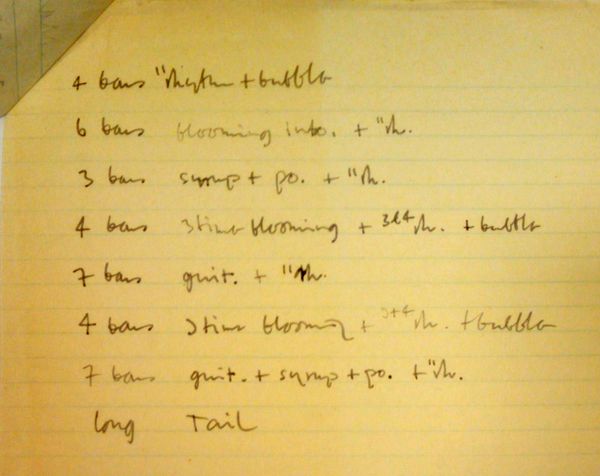 4 bars "rhythm + bubble
6 bars blooming into. + "rh.
3 bars syrup + po. + "rh.
4 bars 3time blooming + 3&4 rh. + bubble
7 bars guit. + "rh.
4 bars 3time blooming + 3+4 rh. + bubble
7 bars guit. + syrup + po. + "rh.
long Tail